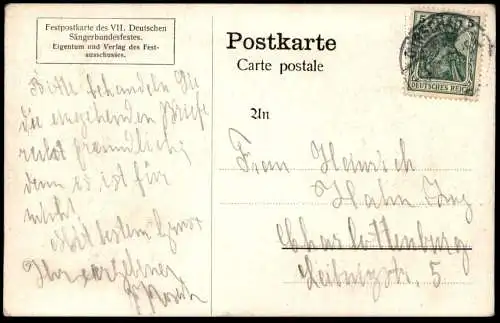 Festpostkarte des VII. Deutschen
Sängerbundesfestes.
Eigentum und Verlag des Fest-
ausschusses.
Postkarte
Carte postale
5 5
DEUTSCHES REICH
An
Bitte behandeln Sie
die eingehenden Briefe
recht freundlich,
denn es ist für
mich!
Mit bestem Gruss
Ihr ergebener
Frau Heinrich
Hahn
Charlottenburg
Leibnizstr. 5